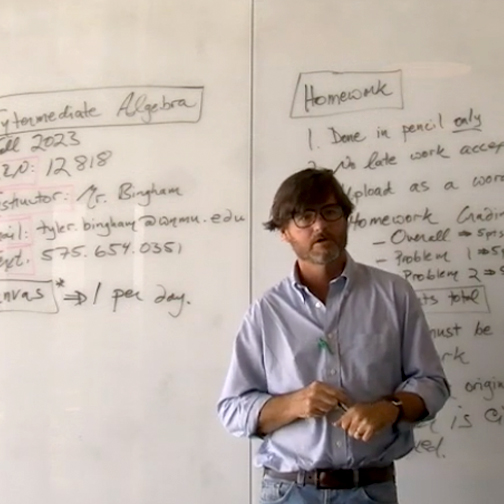 Intermediate Algebra
Fall 2023
CRN: 12818
Instructor: Mr. Bingham
email: tyler.bingham@wnmu.edu
text: 575.654.0351
Canvas * ⇒ 1 per day.
Homework
1. Done in pencil only
2. No late work accep
Upload as a wor
Homework Gradi
- Overall ⇒ 5pts
- Problem 1 ⇒ 5p
Problem 2 ⇒
ts total
must be
rk
origin
is
ed.